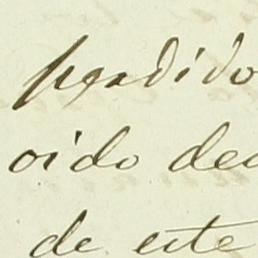 perdido
oido dec
de este